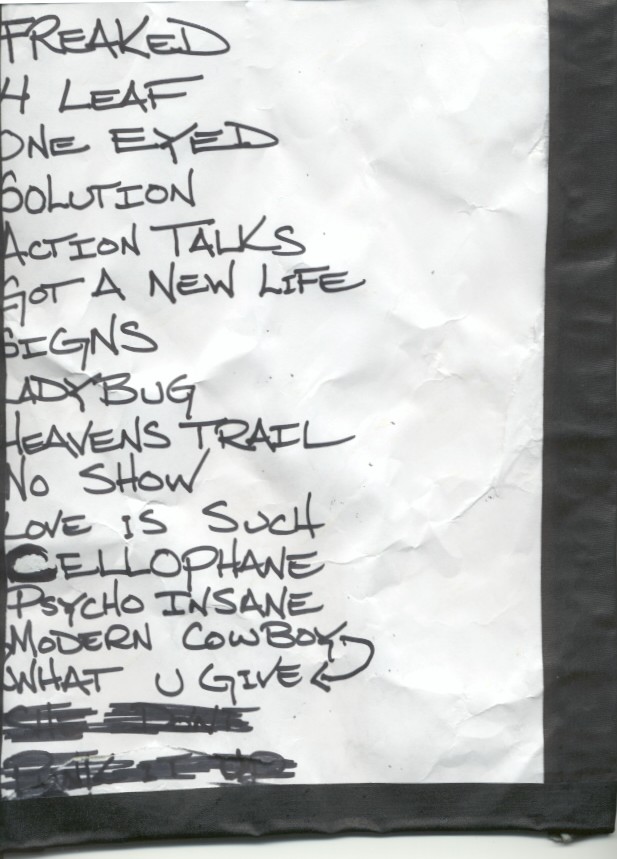 FREAKED
4 LEAF
ONE EYED
SOLUTION
ACTION TALKS
GOT A NEW LIFE
SIGNS
LADYBUG
HEAVENS TRAIL
NO SHOW
LOVE IS SUCH
CELLOPHANE
PSYCHO INSANE
MODERN COWBOY
WHAT U GIVE